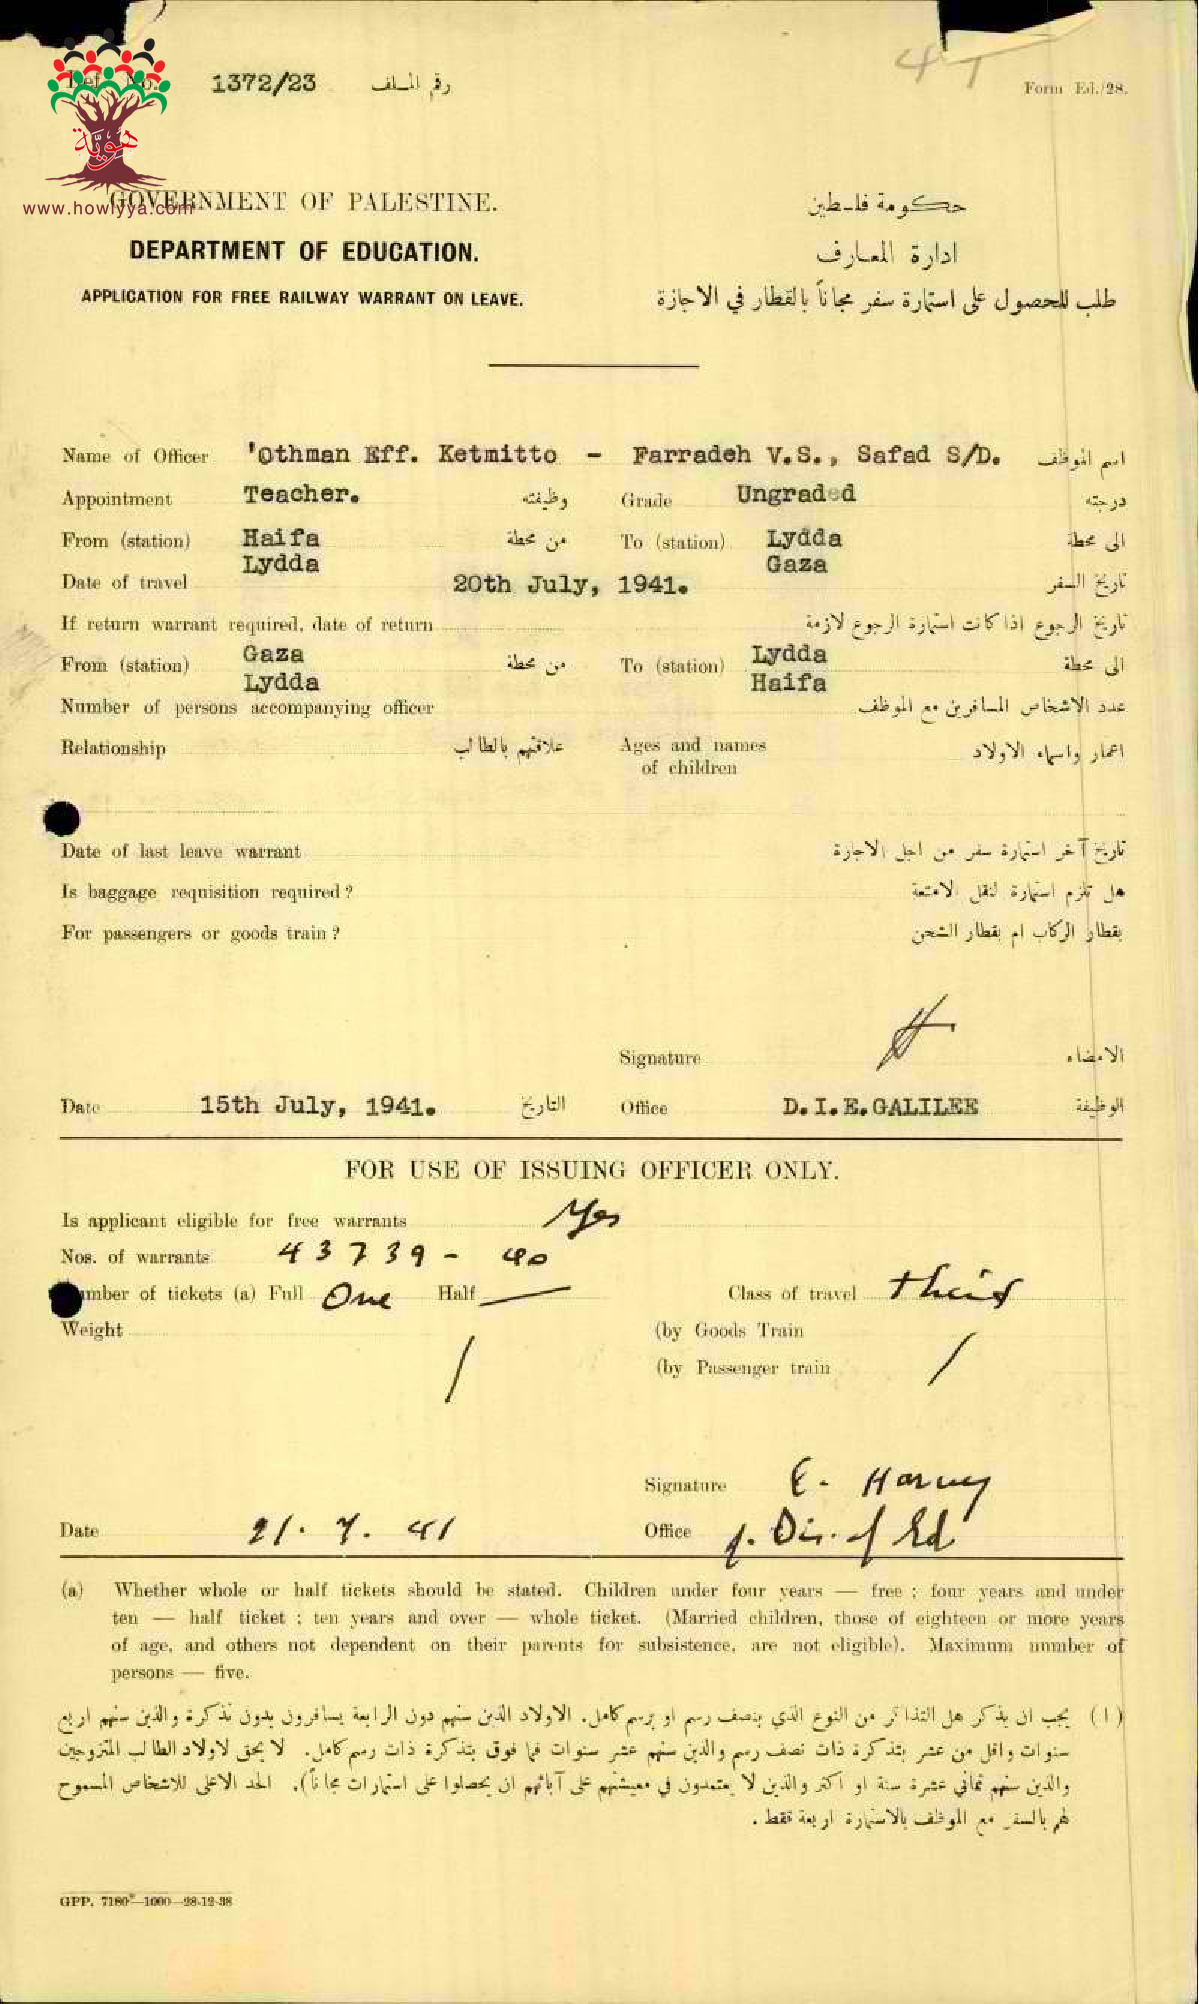 4 T
Ref. No. 1372/23 رقم الملف
Form Ed./28.
هوية
www.howiyya.com
GOVERNMENT OF PALESTINE. حكومة فلسطين
DEPARTMENT OF EDUCATION. ادارة المعارف
APPLICATION FOR FREE RAILWAY WARRANT ON LEAVE. طلب للحصول على استمارة سفر مجاناً بالقطار في الاجازة
Name of Officer 'Othman Eff. Ketmitto - Farradeh V.S., Safad S/D. اسم الموظف
Appointment Teacher. وظيفته Grade Ungraded درجته
From (station) Haifa من محطة To (station) Lydda الى محطة
Lydda Gaza
Date of travel 20th July, 1941. تاريخ السفر
If return warrant required, date of return تاريخ الرجوع اذا كانت استمارة الرجوع لازمة
From (station) Gaza من محطة To (station) Lydda الى محطة
Lydda Haifa
Number of persons accompanying officer عدد الاشخاص المسافرين مع الموظف
Relationship علاقتهم بالطالب Ages and names of children اعمار واسماء الاولاد
Date of last leave warrant تاريخ آخر استمارة سفر من اجل الاجازة
Is baggage requisition required? هل تلزم استمارة لنقل الامتعة
For passengers or goods train? بقطار الركاب ام بقطار الشحن
Signature الامضاء
Date 15th July, 1941. التاريخ Office D.I.E.GALILEE الوظيفة
FOR USE OF ISSUING OFFICER ONLY.
Is applicant eligible for free warrants Yes
Nos. of warrants 43739 - 40
Number of tickets (a) Full One Half — Class of travel third
Weight / (by Goods Train
(by Passenger train /
Signature E. Harvey
Date 21. 7. 41 Office f. Dir. of Ed
(a) Whether whole or half tickets should be stated. Children under four years — free; four years and under
ten — half ticket; ten years and over — whole ticket. (Married children, those of eighteen or more years
of age, and others not dependent on their parents for subsistence, are not eligible). Maximum number of
persons — five.
(١) يجب ان يذكر هل التذاكر من النوع الذي بنصف رسم او برسم كامل. الاولاد الذين سنهم دون الرابعة يسافرون بدون تذكرة والذين سنهم اربع
سنوات واقل من عشر بتذكرة ذات نصف رسم والذين سنهم عشر سنوات فما فوق بتذكرة ذات رسم كامل. لا يحق لاولاد الطالب المتزوجين
والذين سنهم ثماني عشرة سنة او اكثر والذين لا يعتمدون في معيشتهم على آبائهم ان يحصلوا على استمارات مجاناً). الحد الاعلى للاشخاص المسموح
لهم بالسفر مع الموظف بالاستمارة اربعة فقط.
GPP. 7180—1000—28-12-38